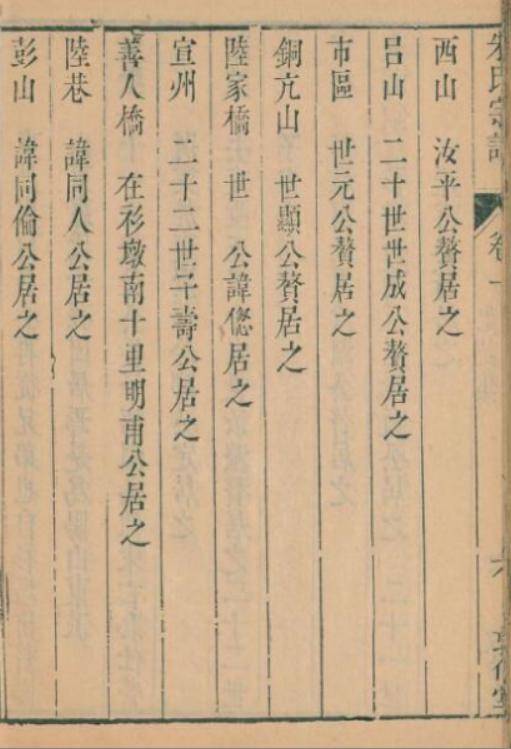 朱氏宗譜 卷一 六
西山 汝平公贅居之
呂山 二十世世成公贅居之
市區 世元公贅居之
銅亢山 世顯公贅居之
陸家橋 世 公諱偬居之
宣州 二十二世子壽公居之
善人橋 在衫墩南十里明甫公居之
陸巷 諱同人公居之
彭山 諱同倫公居之